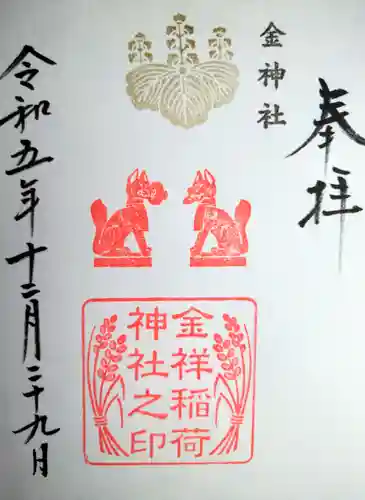 奉拝
金神社
金祥稲荷
神社之印
令和五年十二月二十九月